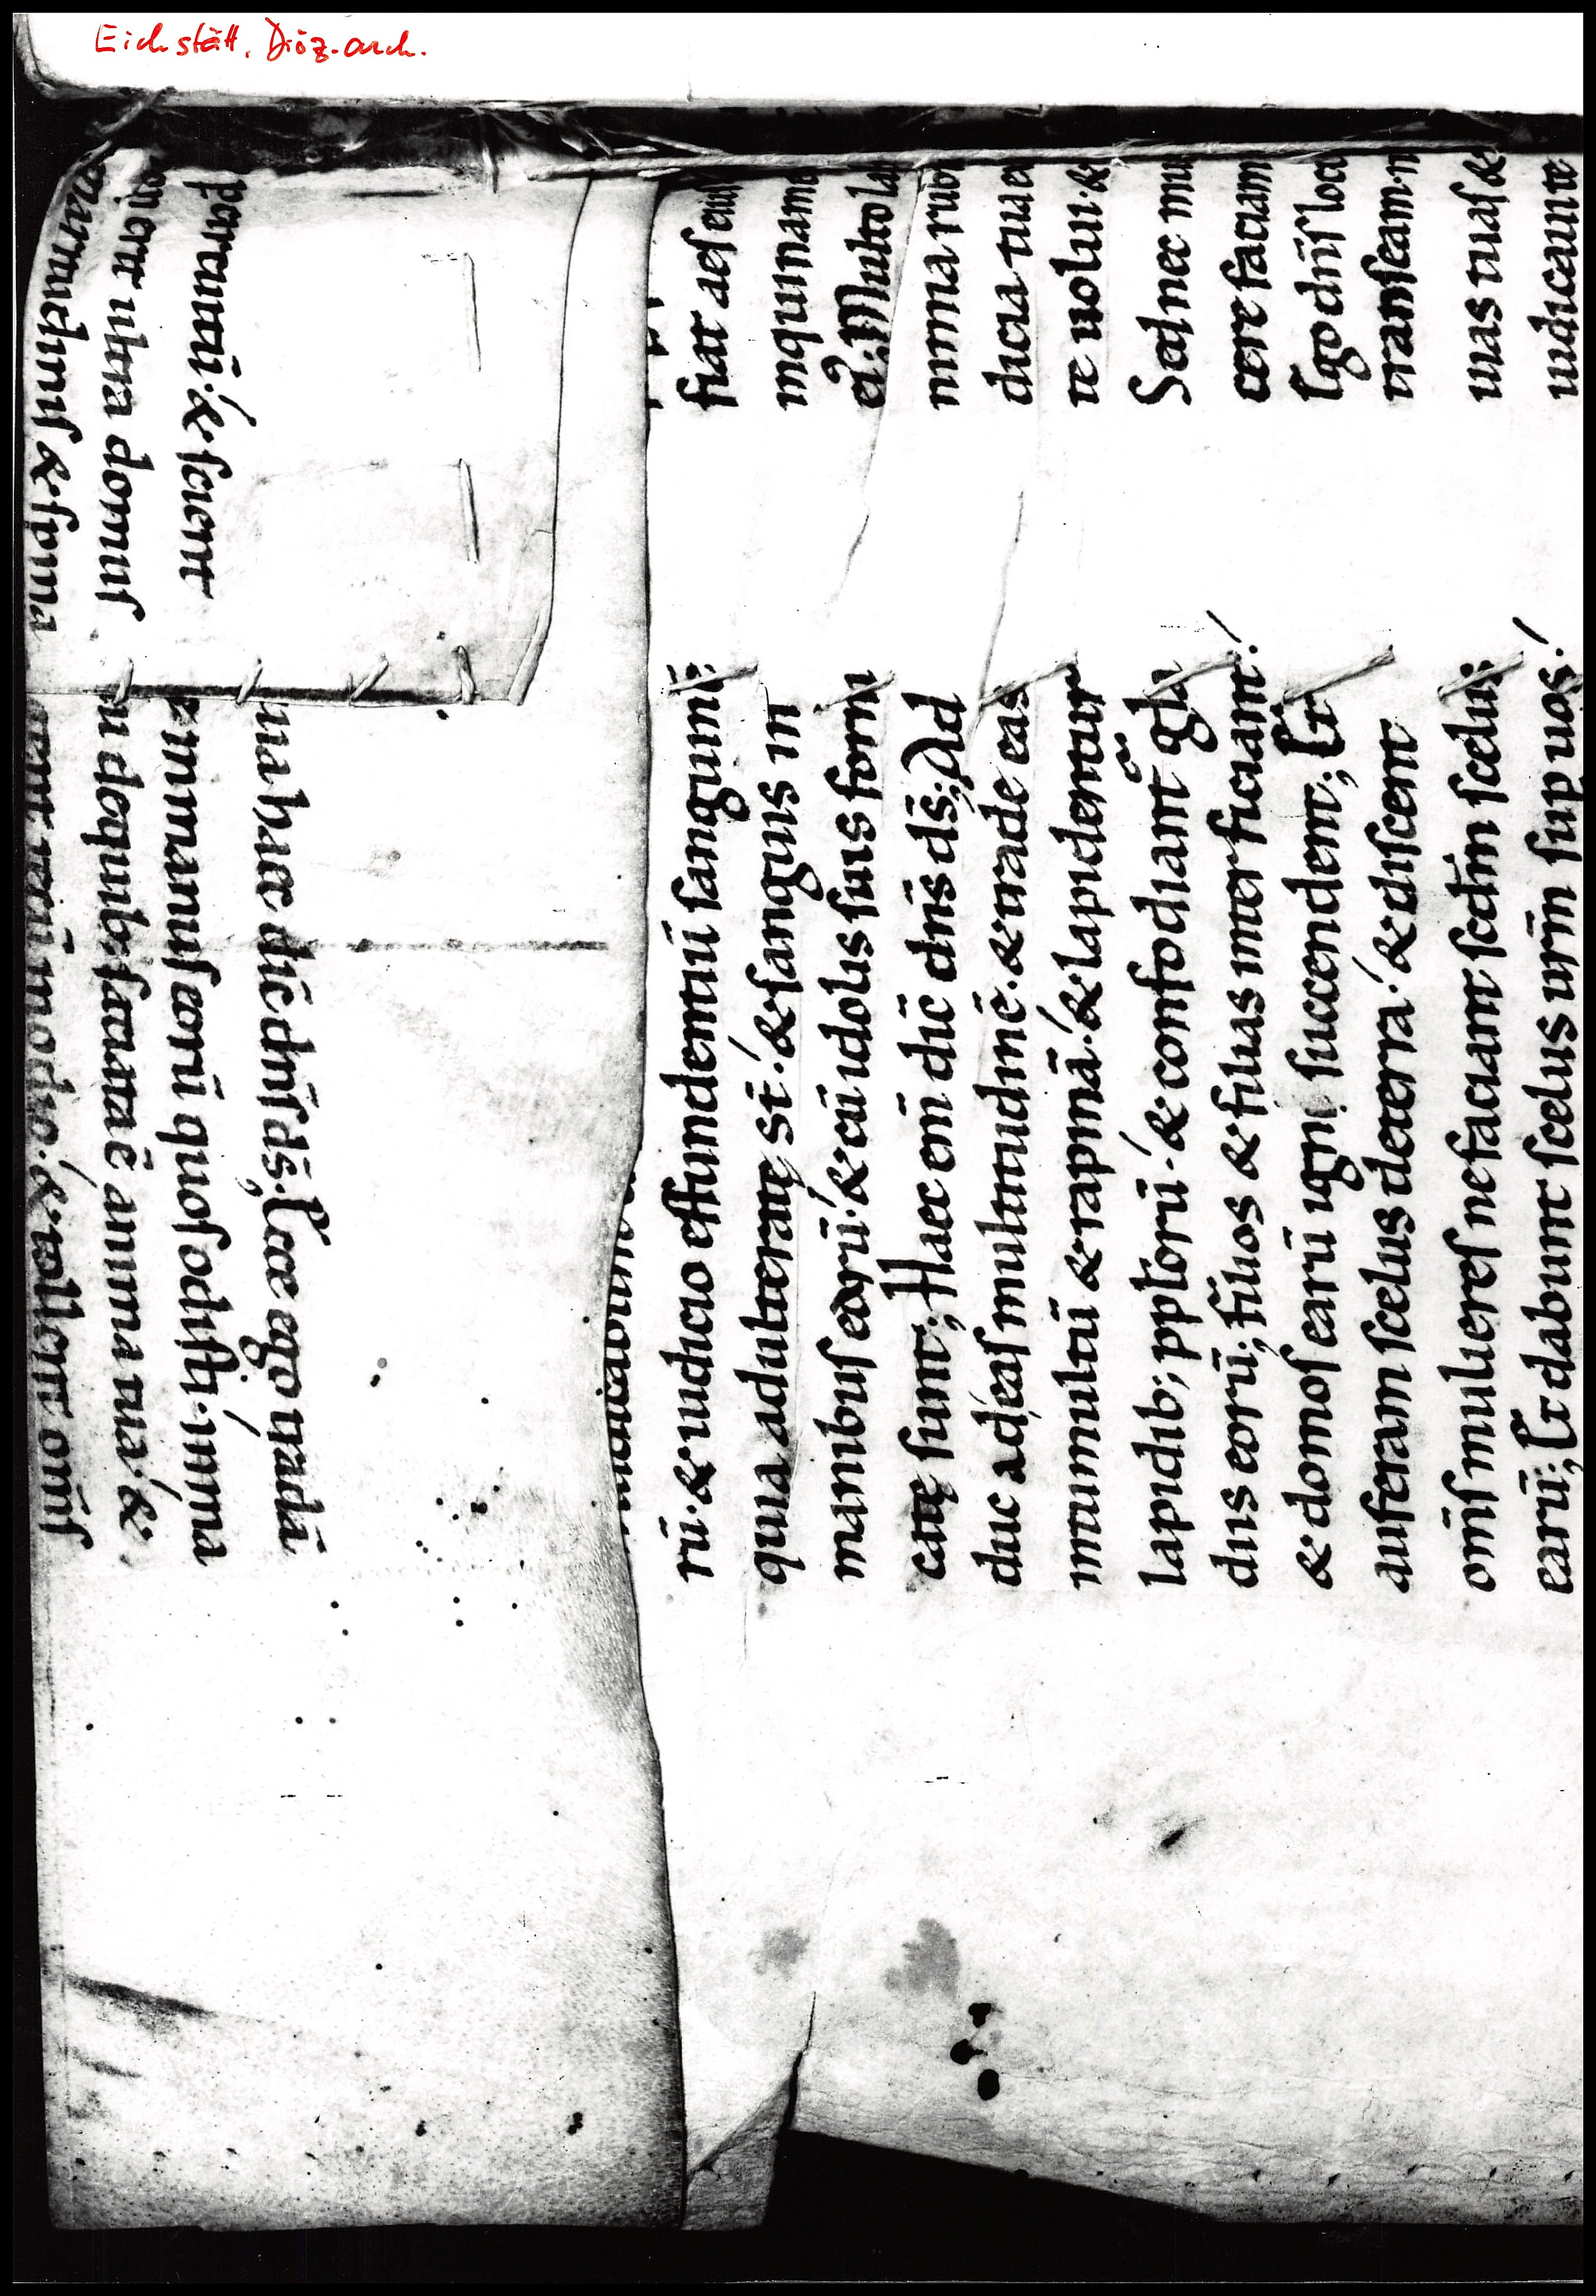 Eichstätt. Diöz.arch.
percutiū·& scient
ultra domuſ
& ſpina
na haec dic̄ dn̄ſ ds̄; Ecce ego tradā
in manuſ eorū quoſ odiſti· in ma
nu de quib; ſatiata ē anima tua· &
rū· & iudicio effundentiū ſanguinē;
quia adulteratę st̄· & ſanguis in
manibuſ eorū· & cū idolis ſuis forni
catę ſunt; Haec en̄ dic̄ dn̄s ds̄; Ad
duc ad eaſ multitudinē· & trade eas
in tumultū & rapinā· & lapidentur
lapidib; pptorū· & confodiant gla
diis eorū; filios & filias interficiant·
& domoſ earū igni ſuccendent; Et
auferam ſcelus de terra· & diſcent
om̄ſ muliereſ ne faciant ſcd̄m ſcelus
earū; Et dabunt ſcelus urm̄ ſup uos·
fiat aeſ eius
inquiname
ei; Multo lab
nimia rubi
dicia tua ex
te uolui· &
Sed nec mu
cere faciam
Ego dn̄ſ locu
tranſeam· n
uias tuaſ &
iudicauit te